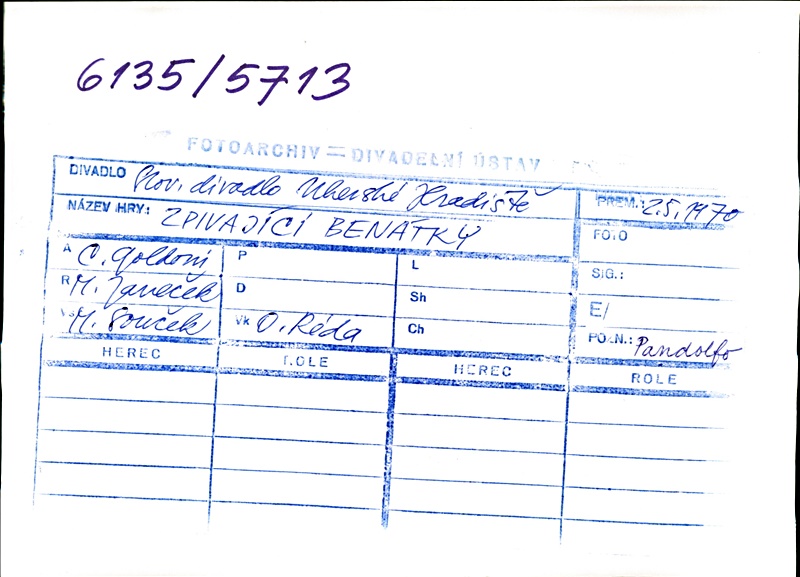 6135/5713
FOTOARCHIV — DIVADELNÍ ÚSTAV
DIVADLO Slov. divadlo Uherské Hradiště PREM.: 2.5.1970
NÁZEV HRY: ZPIVAJÍCÍ BENÁTKY FOTO
A C. Goldoni P L SIG.:
R M. Janeček D Sh E/
M. Souček Vk O. Réda Ch POZN.: Pandolfo
HEREC ROLE HEREC ROLE